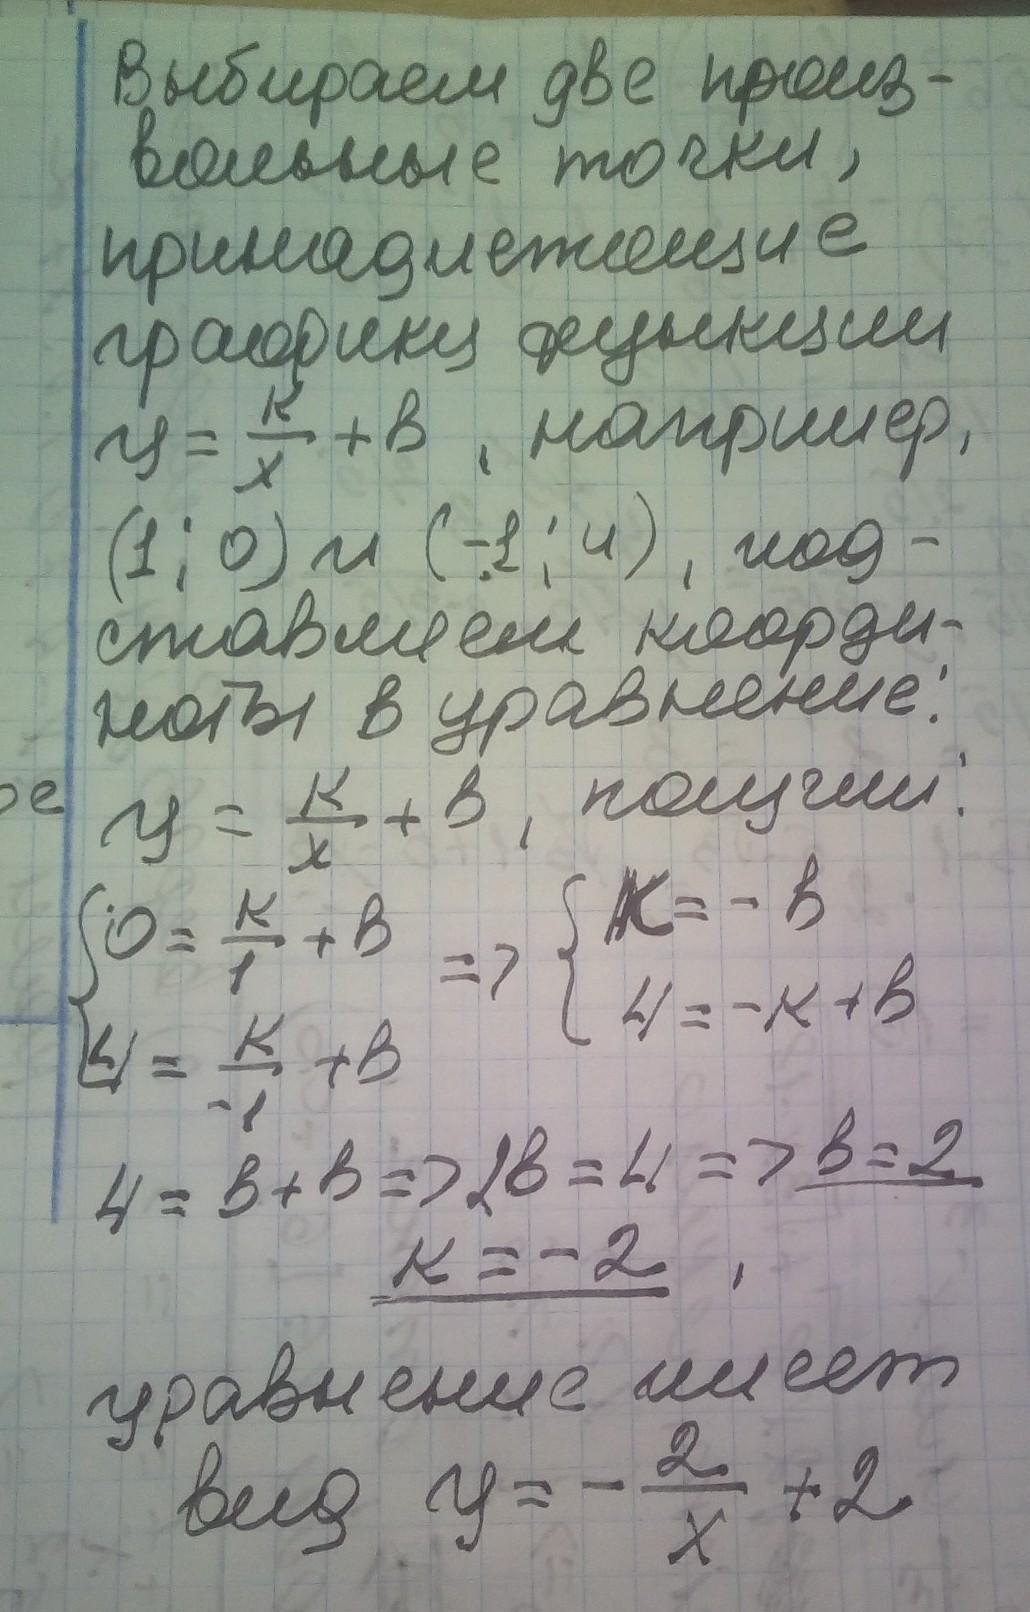 Выбираем две произ-
вольные точки,
принадлежащие
графику функции
y = к/x + в, например,
(1; 0) и (-1; 4), под-
ставляем коорди-
наты в уравнение:
ое
y = к/x + в, получим:
{ 0 = к/1 + в => { к = - в
4 = к/-1 + в 4 = -к + в
4 = в + в => 2в = 4 => в = 2
к = - 2 ,
уравнение имеет
вид y = - 2/x + 2